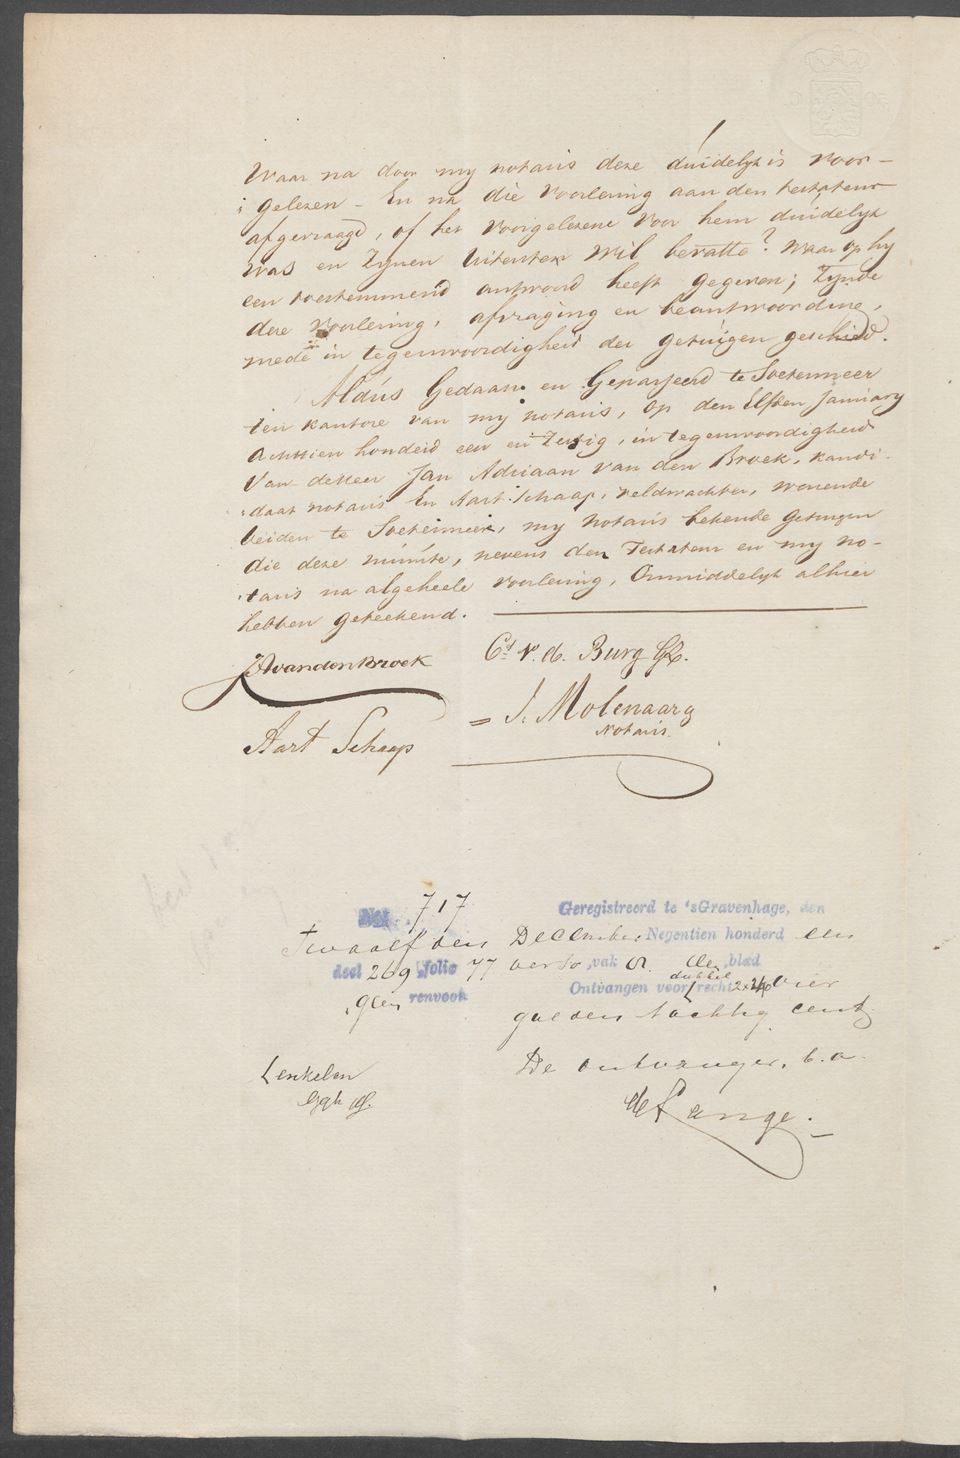 Waar na door my notaris deze duidelyk is voor-
gelezen - En na die voorlezing aan den testateur
afgevraagd, of het voorgelezene voor hem duidelyk
was en Zynen Uitersten Wil bevatte? waar op hy
een toestemmend antwoord heeft gegeven; Zynde
deze voorlezing, afvraging en beantwoording,
mede in tegenwoordigheid der getuigen geschied.
Aldus Gedaan en Gepasseerd te Soetermeer
ten kantore van my notaris, op den Elfden January
achttien honderd een en Zestig, in tegenwoordigheid
van de Heer Jan Adriaan van den Broek, kandi-
daat notaris En Aart Schaap, veldwachter, wonende
beiden te Soetermeer, my notaris bekende getuigen
die deze minute, nevens den Testateur en my no-
taris na algeheele voorlezing, Onmiddelyk alhier
hebben geteekend.
JAvandenBroek Cs v. d. Burg Gz.
Aart Schaap J. Molenaar
Notaris.
No. 717 Geregistreerd te 'sGravenhage, den
Twaalfden December Negentien honderd een
deel 269 folio 77 verso, vak 5. Een blad
geen renvooi Ontvangen voor dubbel recht 2x2.40 vier
gulden tachtig cent.
De ontvanger, b.a.
de Lange.